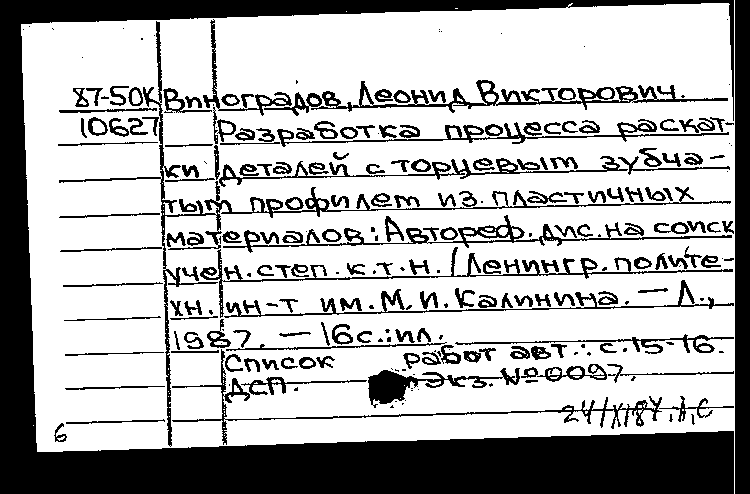 87-50К Виноградов, Леонид Викторович.
10627 Разработка процесса раскат-
ки деталей с торцевым зубча-
тым профилем из пластичных
материалов: Автореф. дис. на соиск
учен. степ. к.т.н. / Ленингр. полите-
хн. ин-т им. М.И. Калинина. — Л.,
1987. — 16с.: ил.
Список работ авт.: с. 15-16.
ДСП. Экз. №0097.
6